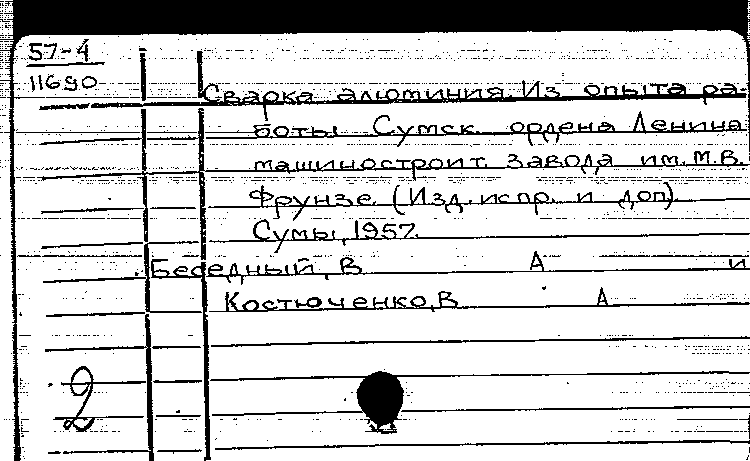 57-4
11690
Сварка алюминия. Из опыта ра-
боты Сумск. ордена Ленина
машиностроит. завода им. М.В.
Фрунзе. (Изд. испр. и доп).
Сумы, 1957.
Беседный, В А и
Костюченко, В А
2